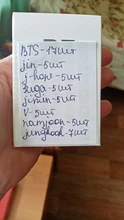 BTS-17шт
jin-5шт
j-hope-5шт
suga-5шт
jimin-5шт
V-5шт
namjoon-5шт
jungkook-7шт